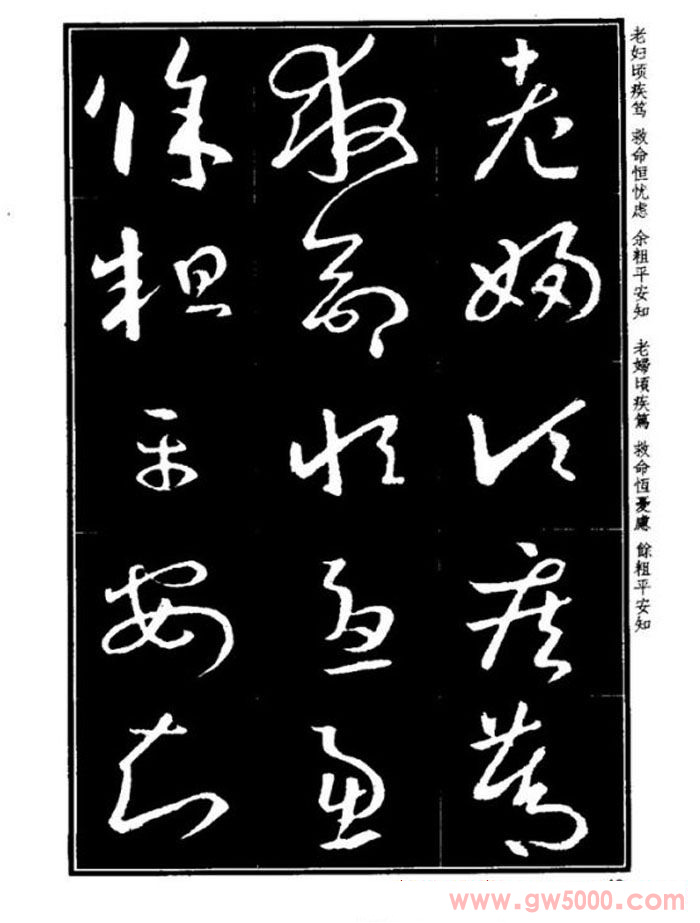 老婦頃疾篤
救命恒憂慮
餘粗平安知
老妇顷疾笃 救命恒忧虑 余粗平安知
老婦頃疾篤 救命恆憂慮 餘粗平安知
www.gw5000.com